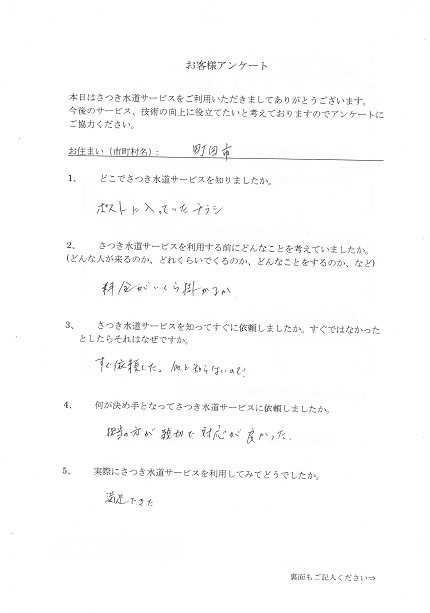 お客様アンケート
本日はさつき水道サービスをご利用いただきましてありがとうございます。
今後のサービス、技術の向上に役立てたいと考えておりますのでアンケートに
ご協力ください。
お住まい（市町村名）： 町田市
1、 どこでさつき水道サービスを知りましたか。
ポストに入っていたチラシ
2、 さつき水道サービスを利用する前にどんなことを考えていましたか。
(どんな人が来るのか、どれくらいでくるのか、どんなことをするのか、など)
料金がいくら掛かるか
3、 さつき水道サービスを知ってすぐに依頼しましたか。すぐではなかった
としたらそれはなぜですか。
すぐ依頼した。他を知らないので
4、 何が決め手となってさつき水道サービスに依頼しましたか。
担当の方が親切で対応が良かった.
5、 実際にさつき水道サービスを利用してみてどうでしたか。
満足できた
裏面もご記入ください⇒